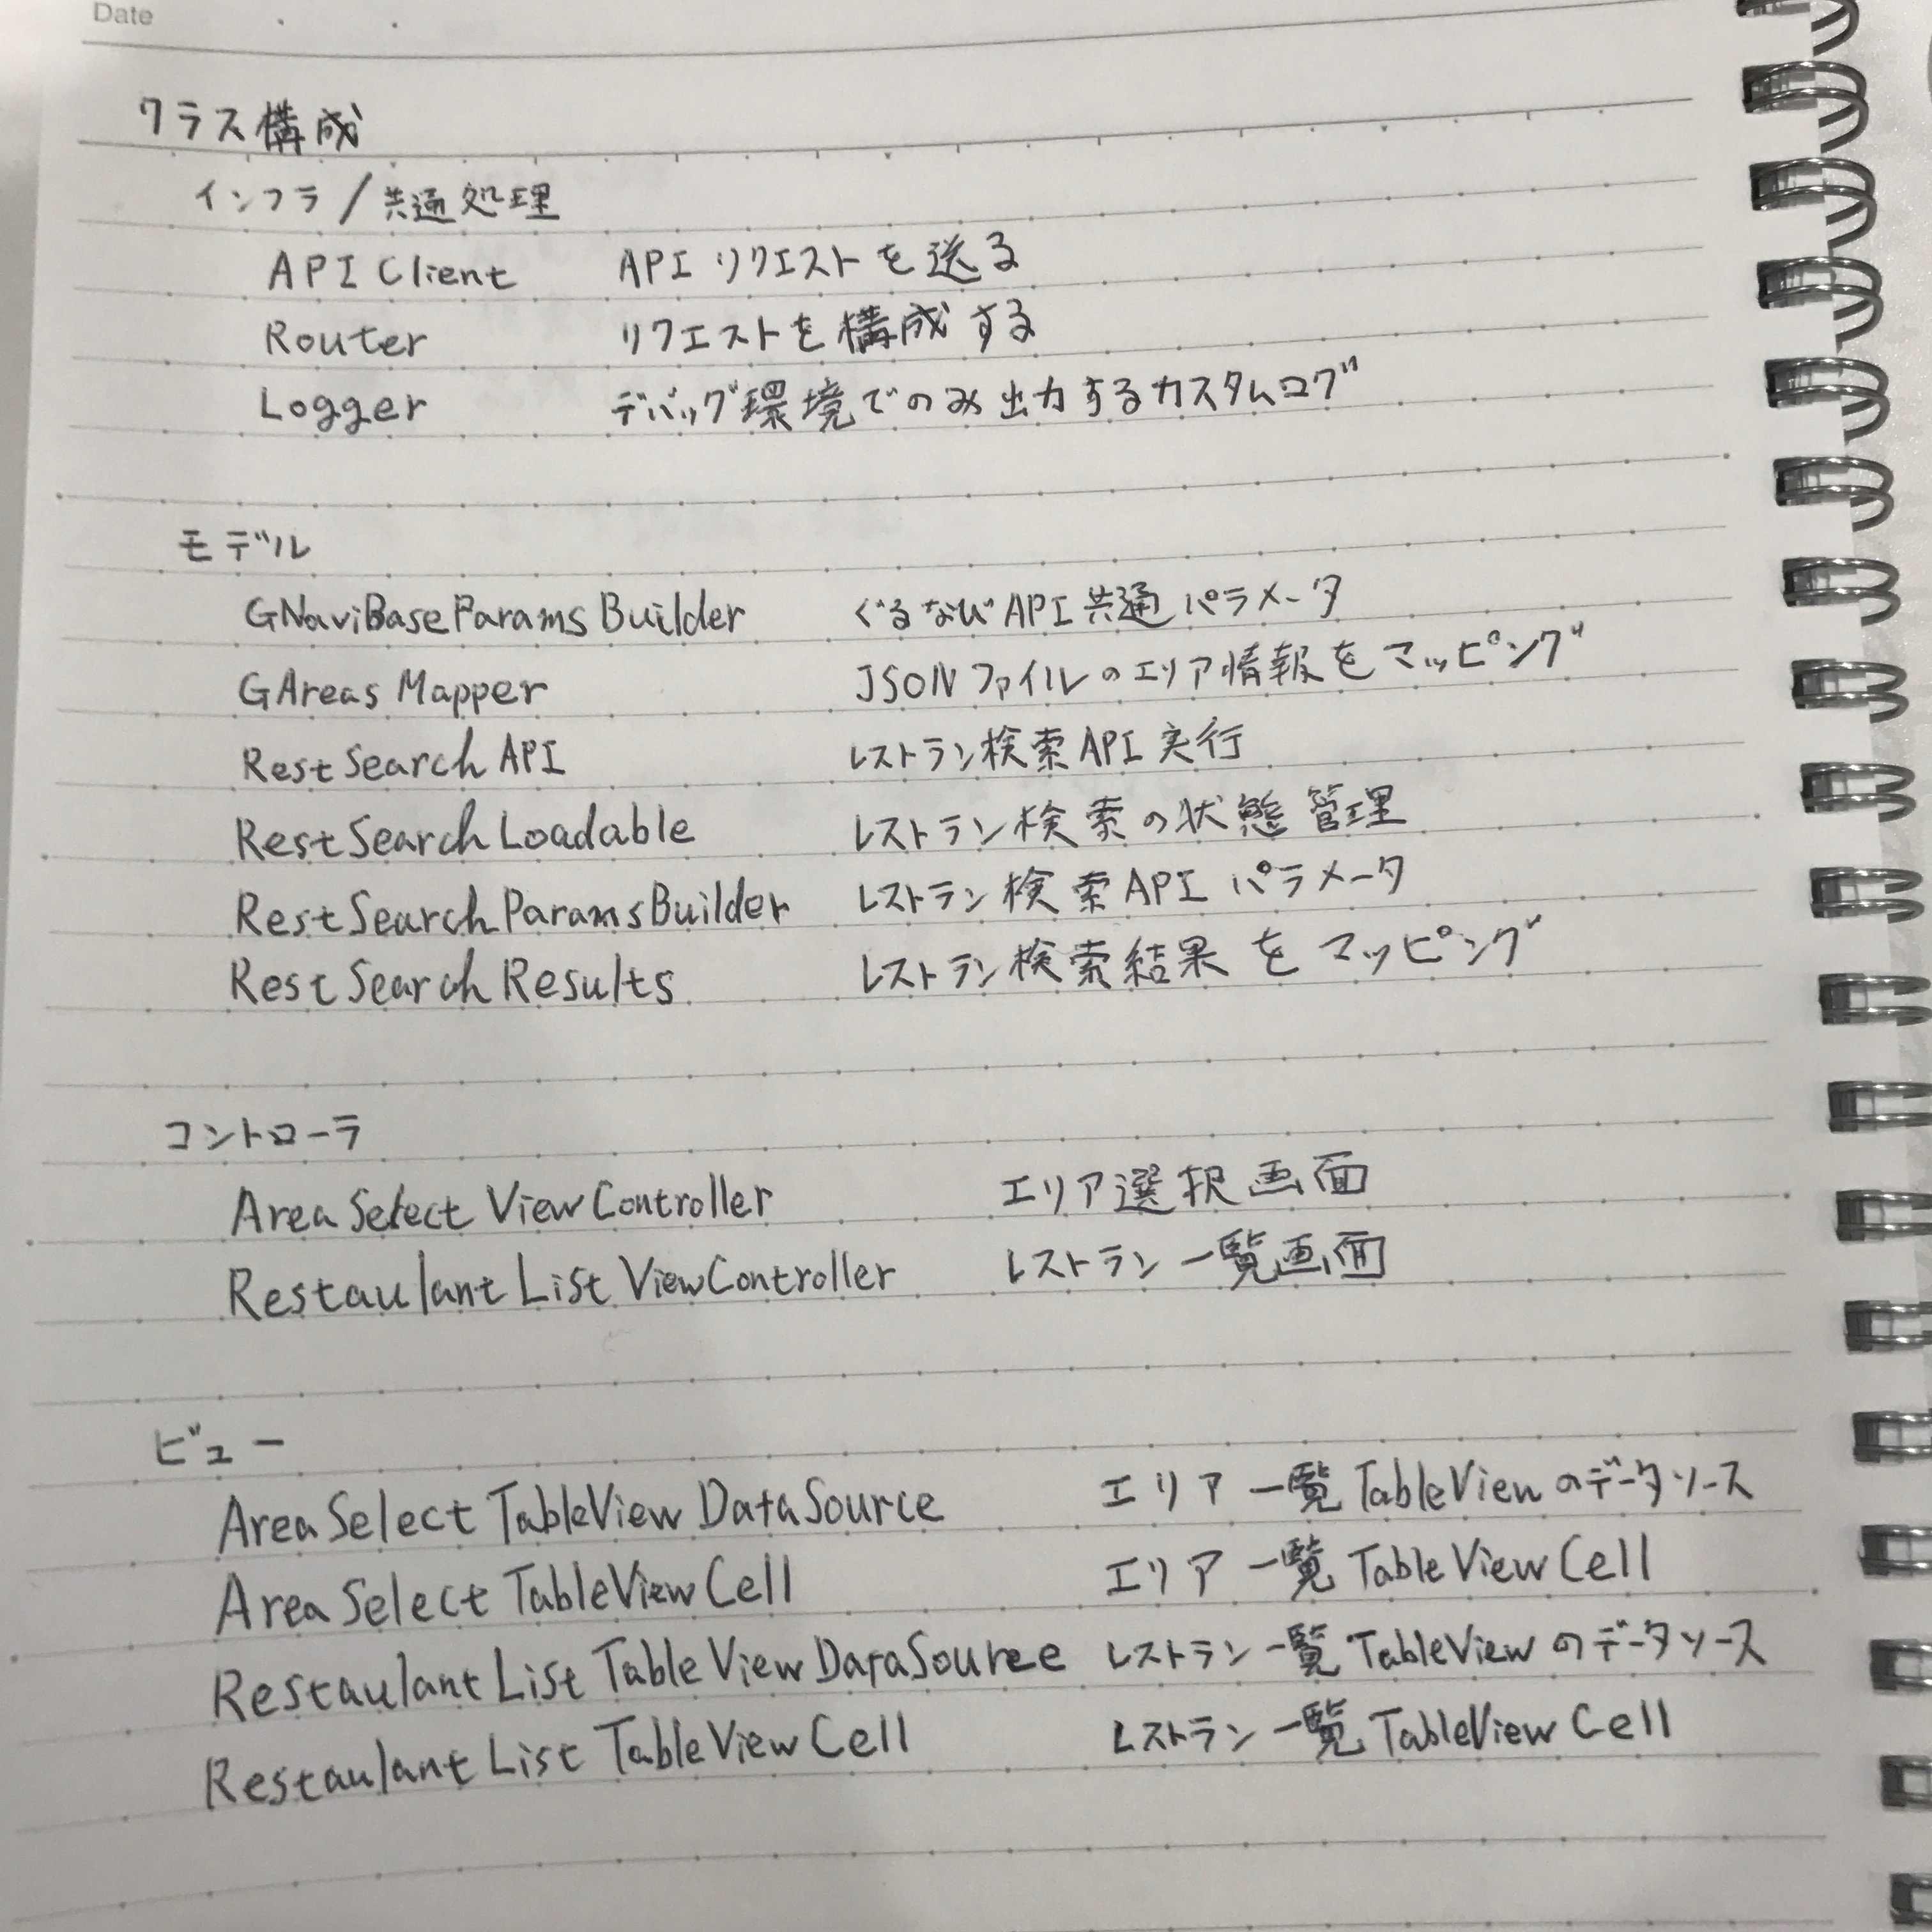 Date
クラス構成
インフラ/共通処理
API Client APIリクエストを送る
Router リクエストを構成する
Logger デバッグ環境でのみ出力するカスタムログ
モデル
GNaviBaseParamsBuilder ぐるなびAPI共通パラメータ
GAreasMapper JSONファイルのエリア情報をマッピング
RestSearchAPI レストラン検索API実行
RestSearchLoadable レストラン検索の状態管理
RestSearchParamsBuilder レストラン検索APIパラメータ
RestSearchResults レストラン検索結果をマッピング
コントローラ
AreaSelectViewController エリア選択画面
RestaulantListViewController レストラン一覧画面
ビュー
AreaSelectTableViewDataSource エリア一覧TableViewのデータソース
AreaSelectTableViewCell エリア一覧TableViewCell
RestaulantListTableViewDataSource レストラン一覧TableViewのデータソース
RestaulantListTableViewCell レストラン一覧TableViewCell